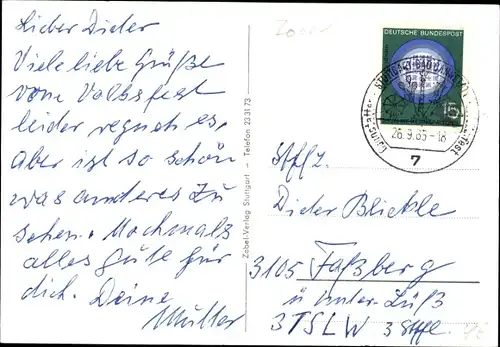 Lieber Dieter
Viele liebe Grüße
vom Volksfest
leider regnet es,
aber ist so schön
was anderes zu
sehen. Nochmals
alles Gute für
dich. Deine
Mutter
Zobel-Verlag Stuttgart - Telefon 23 31 73
DEUTSCHE BUNDESPOST
15
STUTTGART-BAD CANNSTATT
Cannstatter
26.9.65-18
7
Uffz.
Dieter Blickle
3105 Faßberg
ü Unter-Lüß
3 TSLW 3